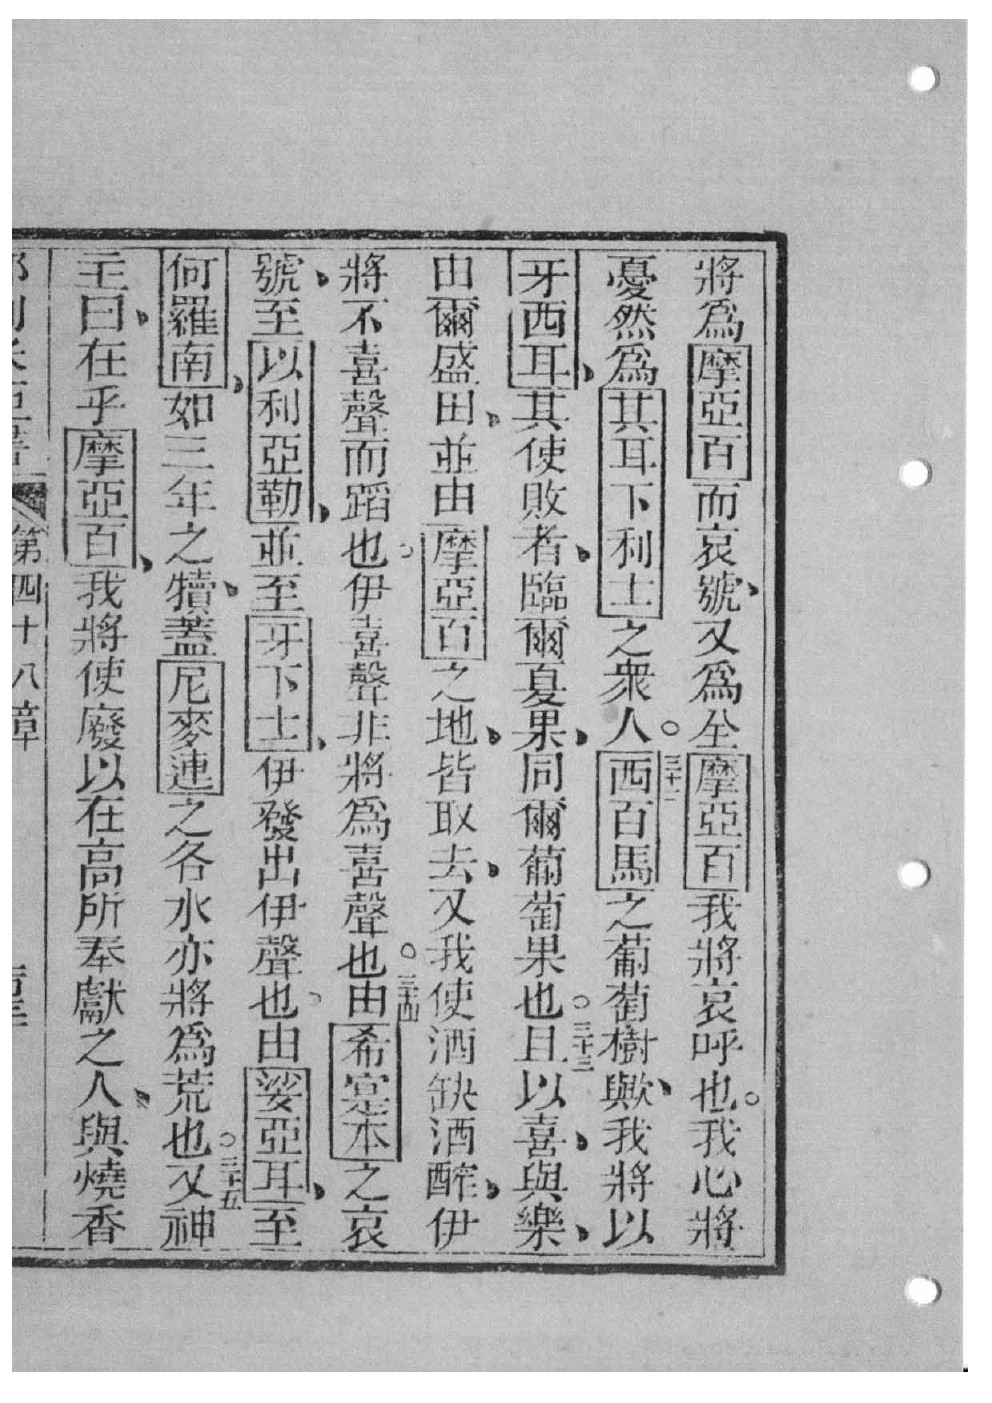 將為摩亞百而哀號又為全摩亞百我將哀呼也我心將
憂然為其耳下利士之衆人。三十二西百馬之葡萄樹歟我將以
牙西耳其使敗者臨爾夏果同爾葡萄果也。三十三且以喜與樂
由爾盛田並由摩亞百之地皆取去又我使酒缺酒醡伊
將不喜聲而蹈也伊喜聲非將為喜聲也。三十四由希寔本之哀
號至以利亞勒並至牙下士伊發出伊聲也由娑亞耳至
何羅南如三年之犢蓋尼麥連之各水亦將為荒也。三十五又神
主曰在乎摩亞百我將使廢以在高所奉獻之人與燒香
第四十八章